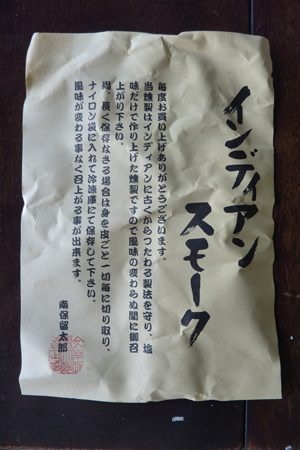 インディアン
スモーク
毎度お買い上げありがとうございます。
当燻製はインディアンに古くからつたわる製法を守り、塩
味だけで作り上げた燻製ですので風味の変わらぬ間に御召
上がり下さい。
尚、長く保存なさる場合は身を皮ごと一切毎に切り取り、
ナイロン袋に入れて冷凍庫にて保存して下さい。
風味が変わる事なく召上がる事が出来ます。
南保留太郎